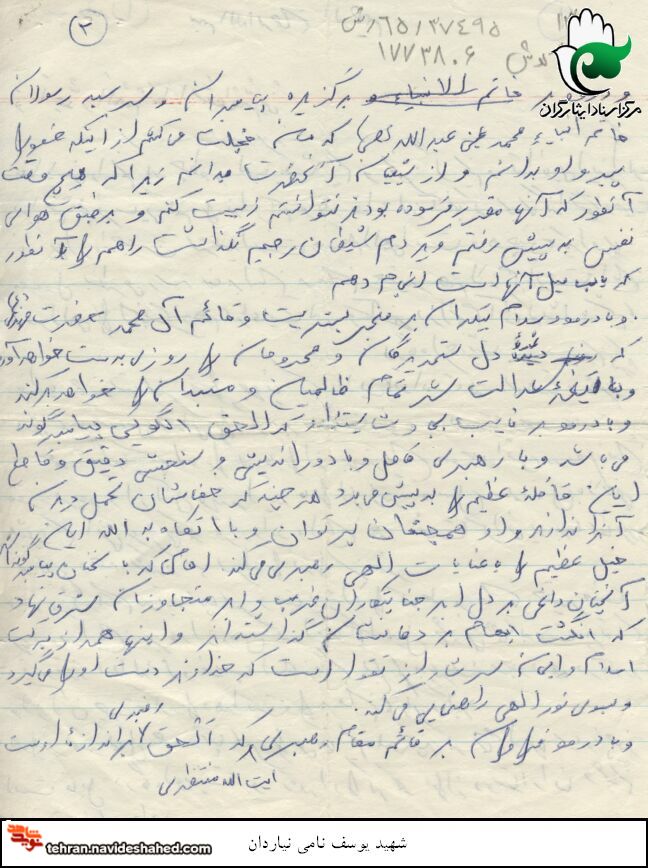 ۲
۶۵/۳۷۴۹۵
۱۷۷۳۸۰۶
مرکز اسناد ایثارگران
خاتم الانبیاء برگزیده پیامبران و سر سبد رسولان
خاتم انبیاء محمد بن عبدالله که من خجلت می‌کشم از اینکه خود را
پیرو او بدانم و از شیعیان آنحضرت بدانم زیرا که هیچ وقت
آنطور که آنها مقرر فرموده بودند نتوانستم زیست کنم و بر طبق هوای
نفس به پیش رفتم و یکدم شیطان رجیم نگذاشت راهم را آنطور
که باب میل آنها است انجام دهم
و با درود و سلام بیکران بر منجی بشریت و قائم آل محمد حضرت مهدی
که دل ستمدیدگان و محرومان را روزی بدست خواهد آورد
و با عدالت شر تمام ظالمان و مستبدان را خواهد کند
و با درود بر نایب بر حق الحق الگوی پیامبرگونه
می‌باشد و با رهبری کامل و با دوراندیشی و سنجشی دقیق و قاطع
این قافله عظیم را به پیش می‌برد هر چند که تحمل دیدن
آنرا ندارند و او همچنان پر توان و با اتکاء به الله این
خیل عظیم را با عنایات الهی رهبری می‌کند امامی که با سخنان پیامبرگونه‌اش
آنچنان داغی بر دل ابر جنایتکاران غرب و ابر متجاوزان شرق نهاد
که انگشت ابهام بر دهانشان گذاشته‌اند و اینها همه از برکت
اسلام و ایمان سرشار از تقوا است که خداوند دست او را می‌گیرد
و بسوی نور الهی راهنمایی می‌کند.
و با درود فراوان بر قائم مقام رهبری که الحق رهبری را برازنده اوست
آیت الله منتظری
شهید یوسف نامی نیاردان
نوید شاهد
tehran.navideshahed.com